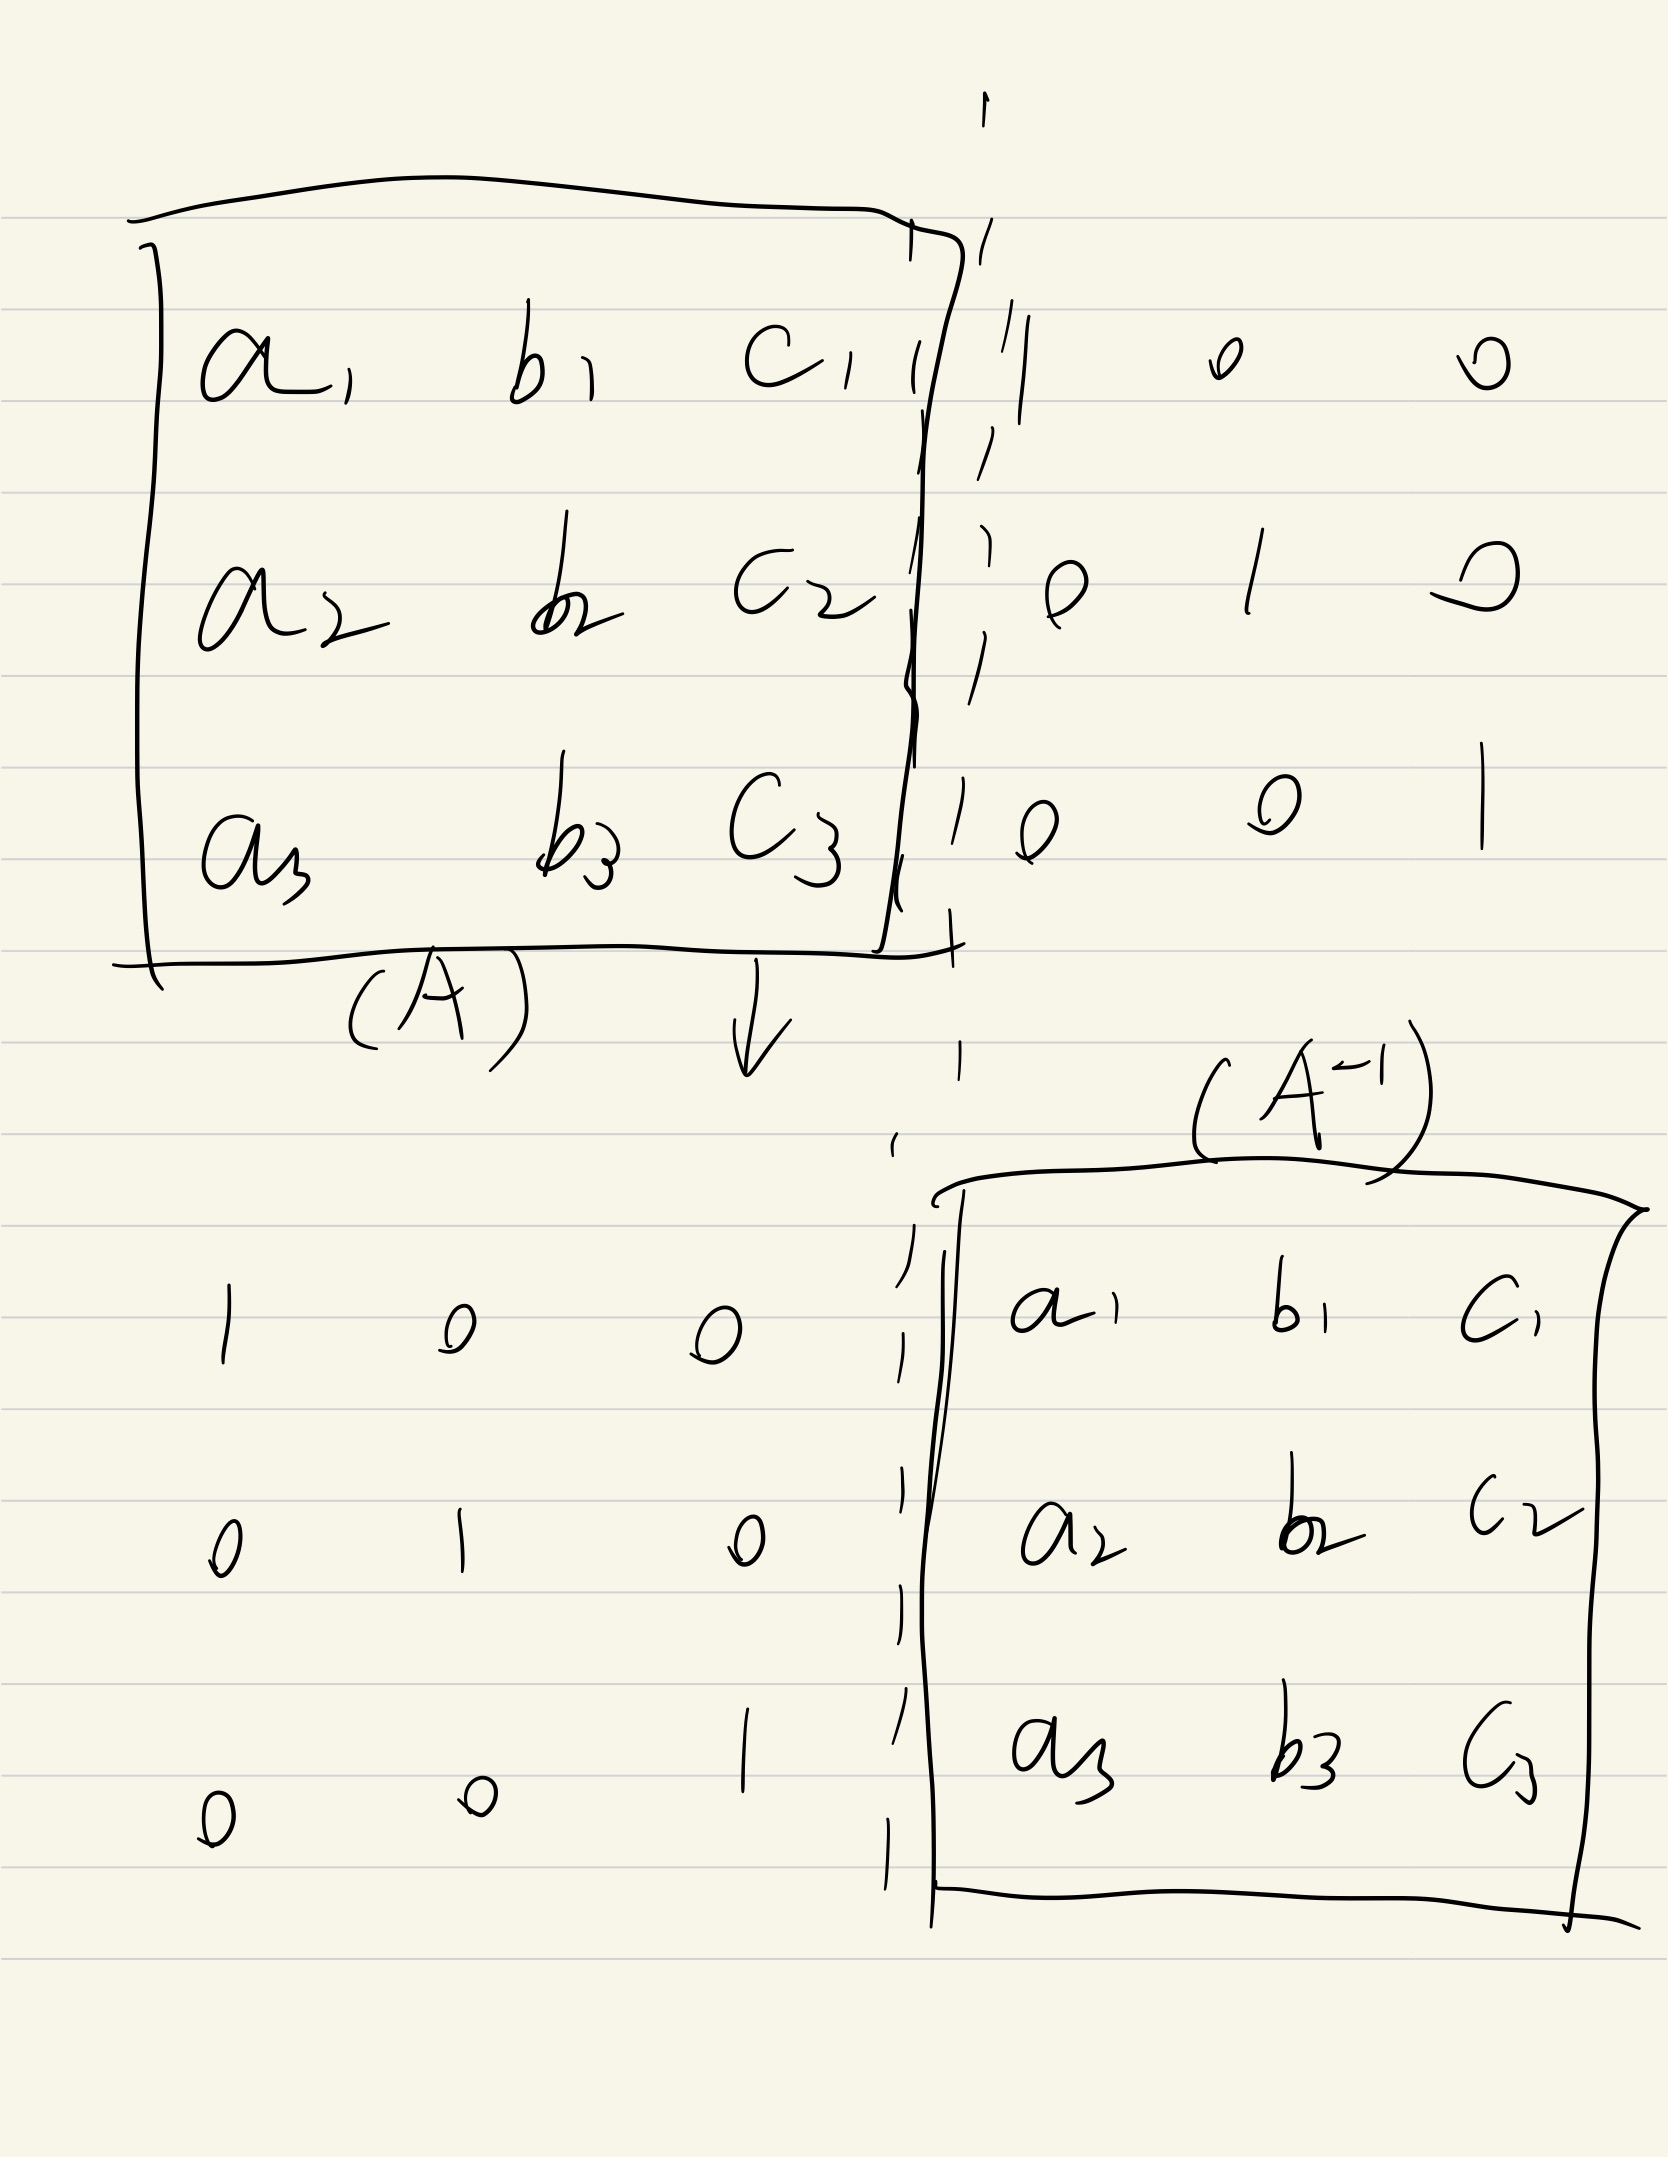 a₁ b₁ c₁ | 1 0 0
a₂ b₂ c₂ | 0 1 0
a₃ b₃ c₃ | 0 0 1
(A) ↓
(A⁻¹)
1 0 0 | a₁ b₁ c₁
0 1 0 | a₂ b₂ c₂
0 0 1 | a₃ b₃ c₃